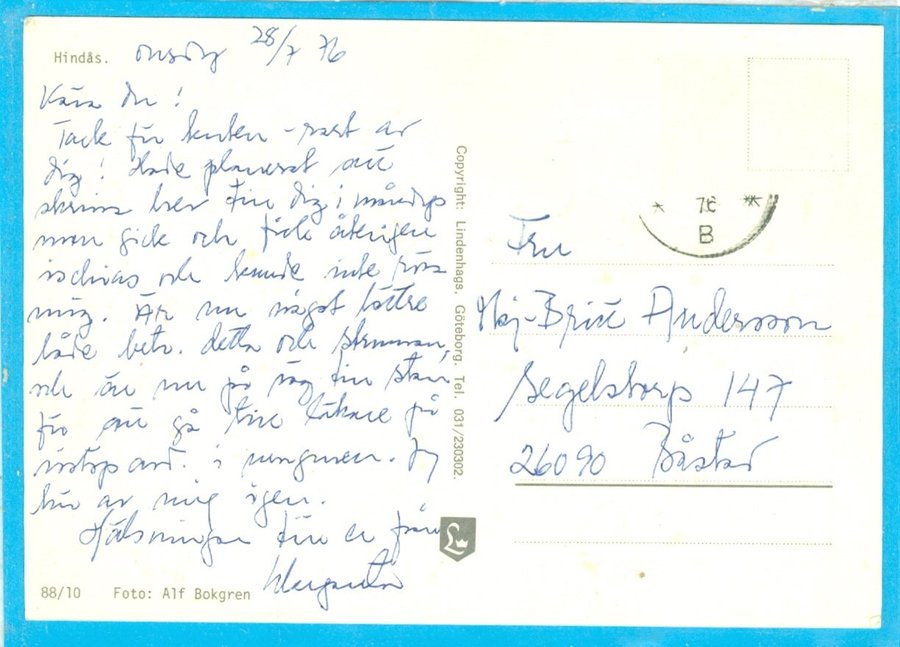 Hindås.
onsdag 28/7 76
Kära du!
Tack för korten - rart av
dig! Hade planerat att
skriva brev till dig i måndags
men gick och fick återigen
ischias och kunde inte röra
mig. Är nu något bättre
både betr. detta och
och är nu på väg till stan
för att gå till läkare på
i Jag
hör av mig igen.
Hälsningar till er från
Margareta
88/10 Foto: Alf Bokgren
Copyright: Lindenhags, Göteborg. Tel. 031/230302.
L
* 76 **
B
Fru
Maj-Britt Andersson
Segelstorp 147
26090 Båstad